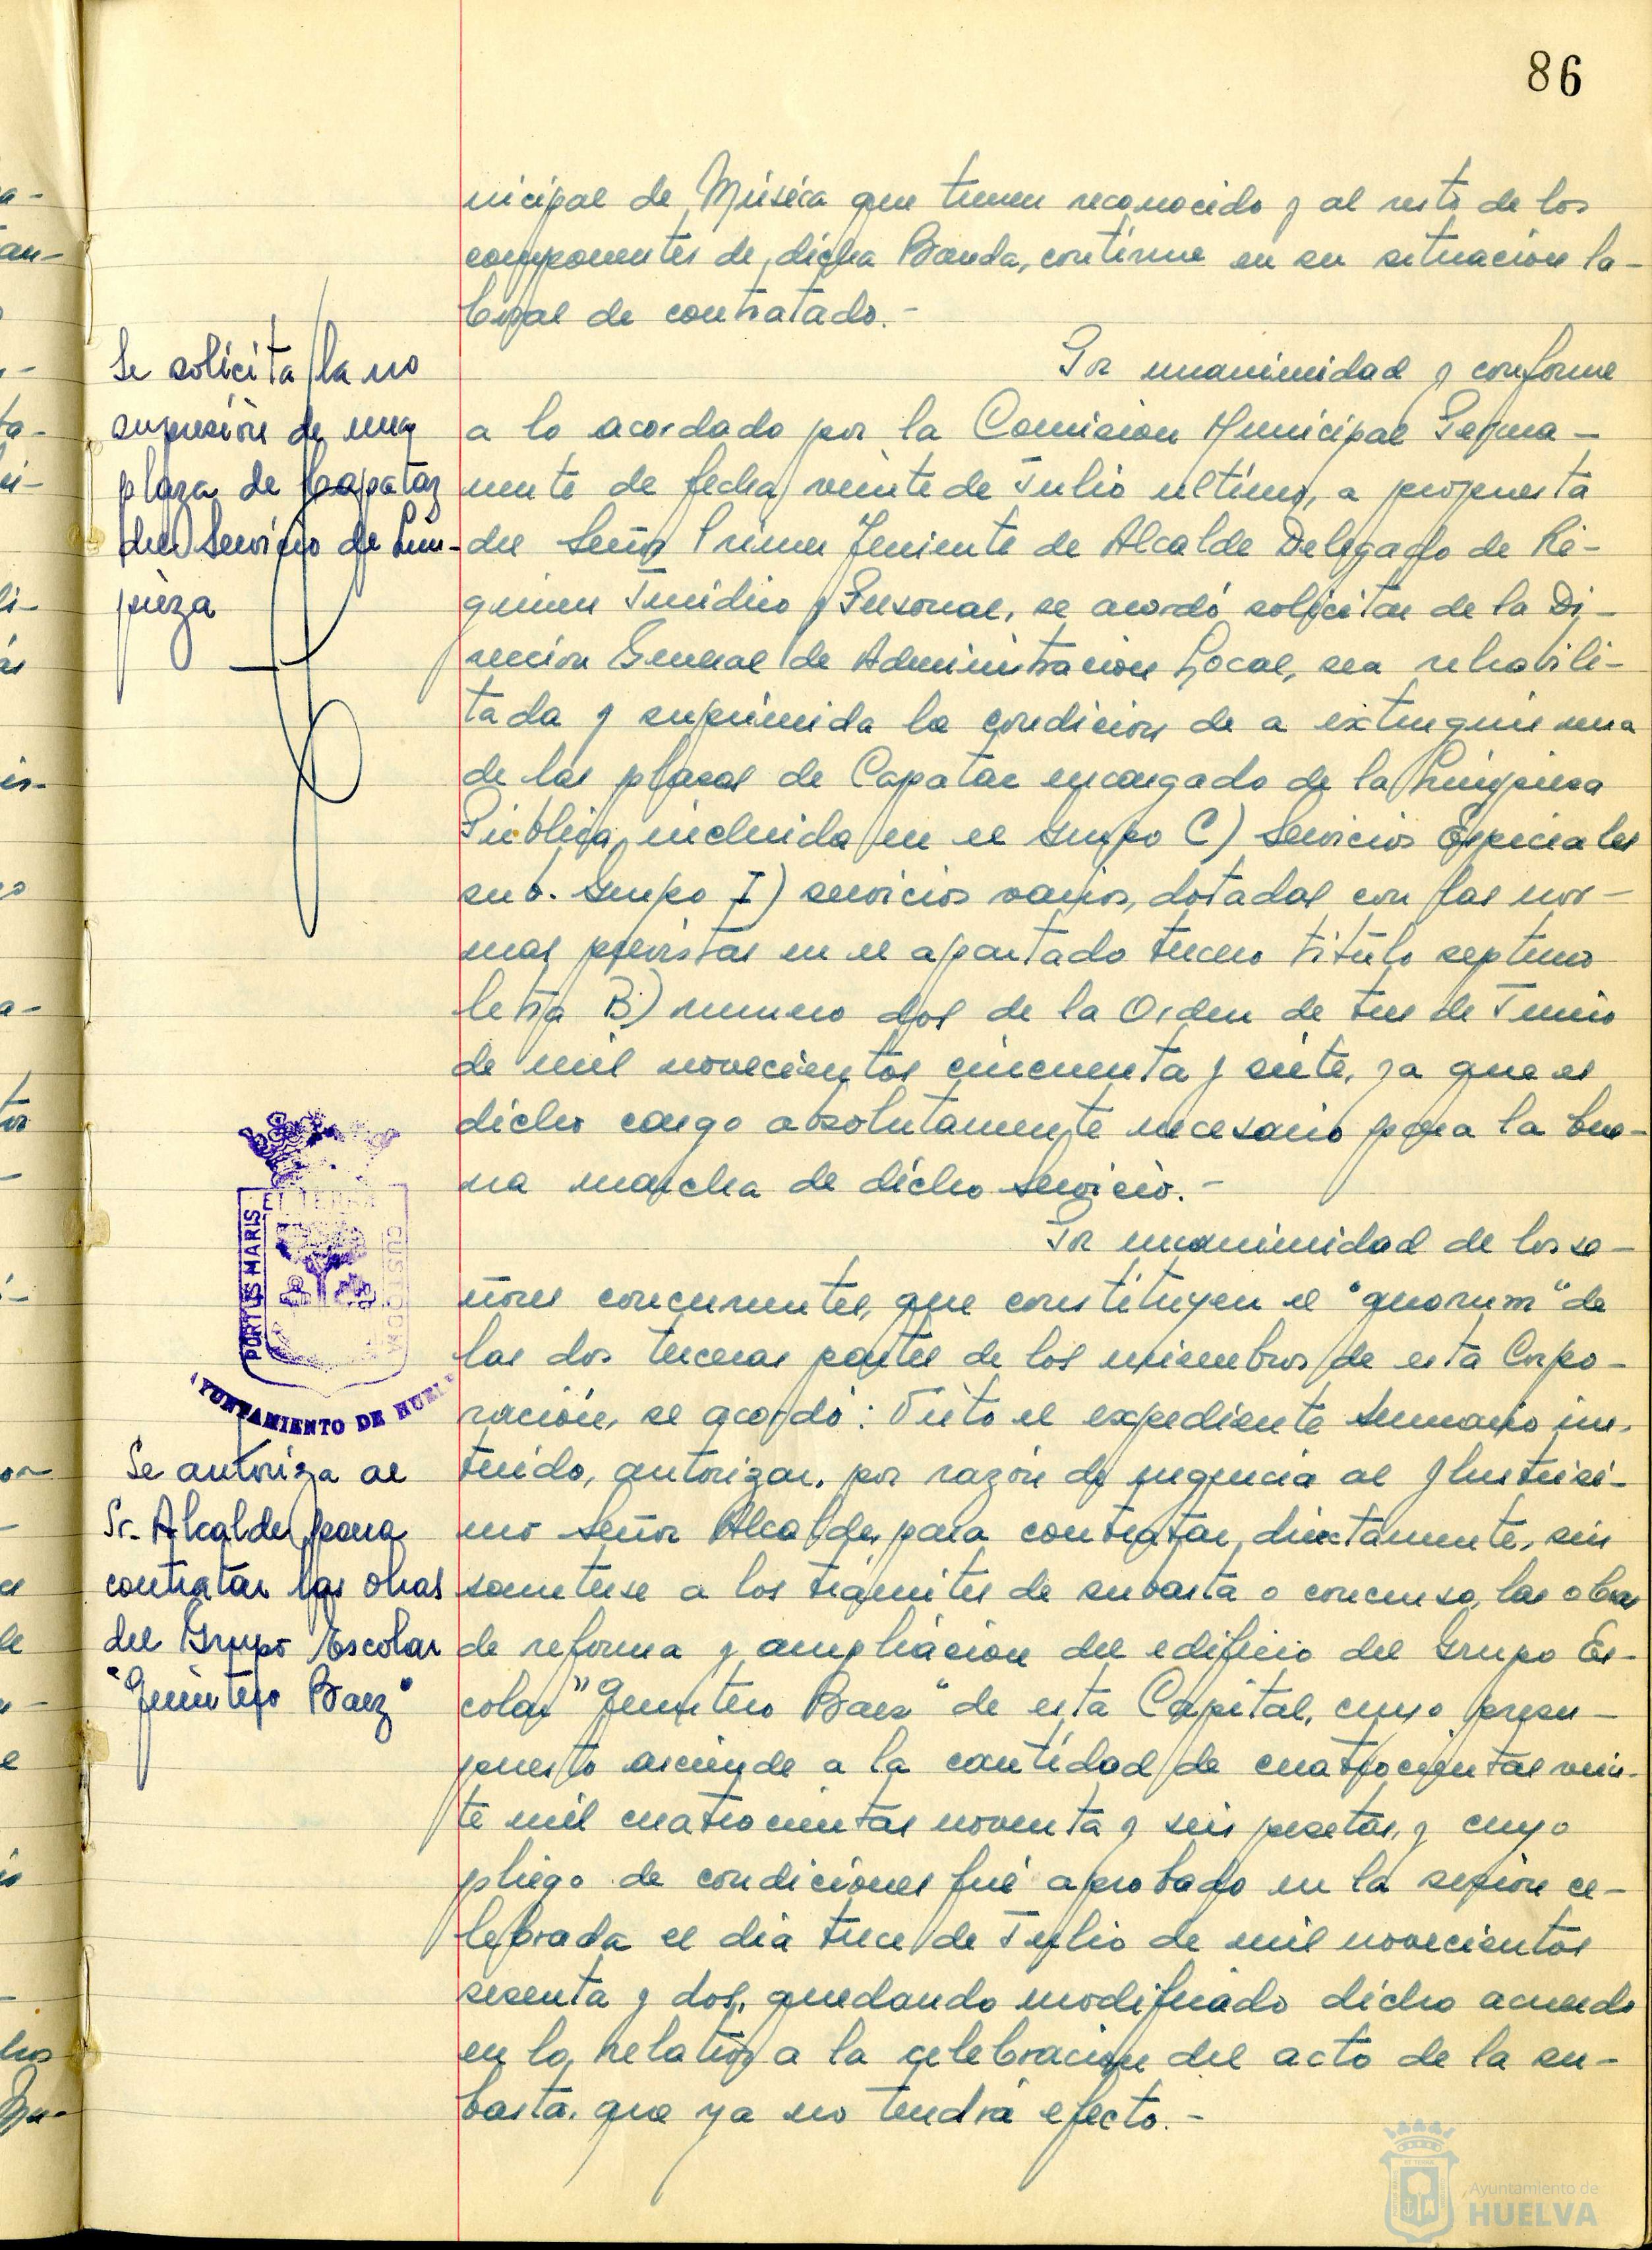 86
nicipal de Música que tienen reconocido y al resto de los
componentes de dicha Banda, continue en su situacion la-
boral de contratado.-
Se solicita la no
supresión de una
plaza de Capataz
del Servicio de Lim-
pieza
Por unanimidad y conforme
a lo acordado por la Comision Municipal Perma-
nente de fecha veinte de Julio ultimo, a propuesta
del Señor Primer Teniente de Alcalde Delegado de Ré-
gimen Juridico y Personal, se acordó solicitar de la Di-
reccion General de Administracion Local, sea rehabili-
tada y suprimida la condicion de a extinguir una
de las plazas de Capataz encargado de la Limpieza
Pública, incluida en el Grupo C) Servicios Especiales
sub. Grupo I) servicios varios, dotadas con las nor-
mas previstas en el apartado tercero titulo septimo
letra B) numero dos de la Orden de tres de Junio
de mil novecientos cincuenta y siete, ya que es
dicho cargo absolutamente necesario para la bue-
na marcha de dicho Servicio.-
PORTUS MARIS
ET TERRA
CUSTODIA
AYUNTAMIENTO DE HUELVA
Se autoriza al
Sr. Alcalde para
contratar las obras
del Grupo Escolar
"Quintero Baez"
Por unanimidad de los se-
ñores concurrentes, que constituyen el "quorum" de
las dos terceras partes de los miembros de esta Corpo-
ración, se acordó: Visto el expediente sumario ins-
truido, autorizar, por razón de urgencia al Ilustrisi-
mo Señor Alcalde, para contratar directamente, sin
someterse a los trámites de subasta o concurso, las obras
de reforma y ampliacion del edificio del Grupo Es-
colar "Quintero Baez" de esta Capital, cuyo presu-
puesto asciende a la cantidad de cuatrocientas vein-
te mil cuatrocientas noventa y seis pesetas, y cuyo
pliego de condiciones fué aprobado en la sesión ce-
lebrada el dia trece de Julio de mil novecientos
sesenta y dos, quedando modificado dicho acuerdo
en lo relativo a la celebracion del acto de la su-
basta, que ya no tendrá efecto.-
Ayuntamiento de
HUELVA